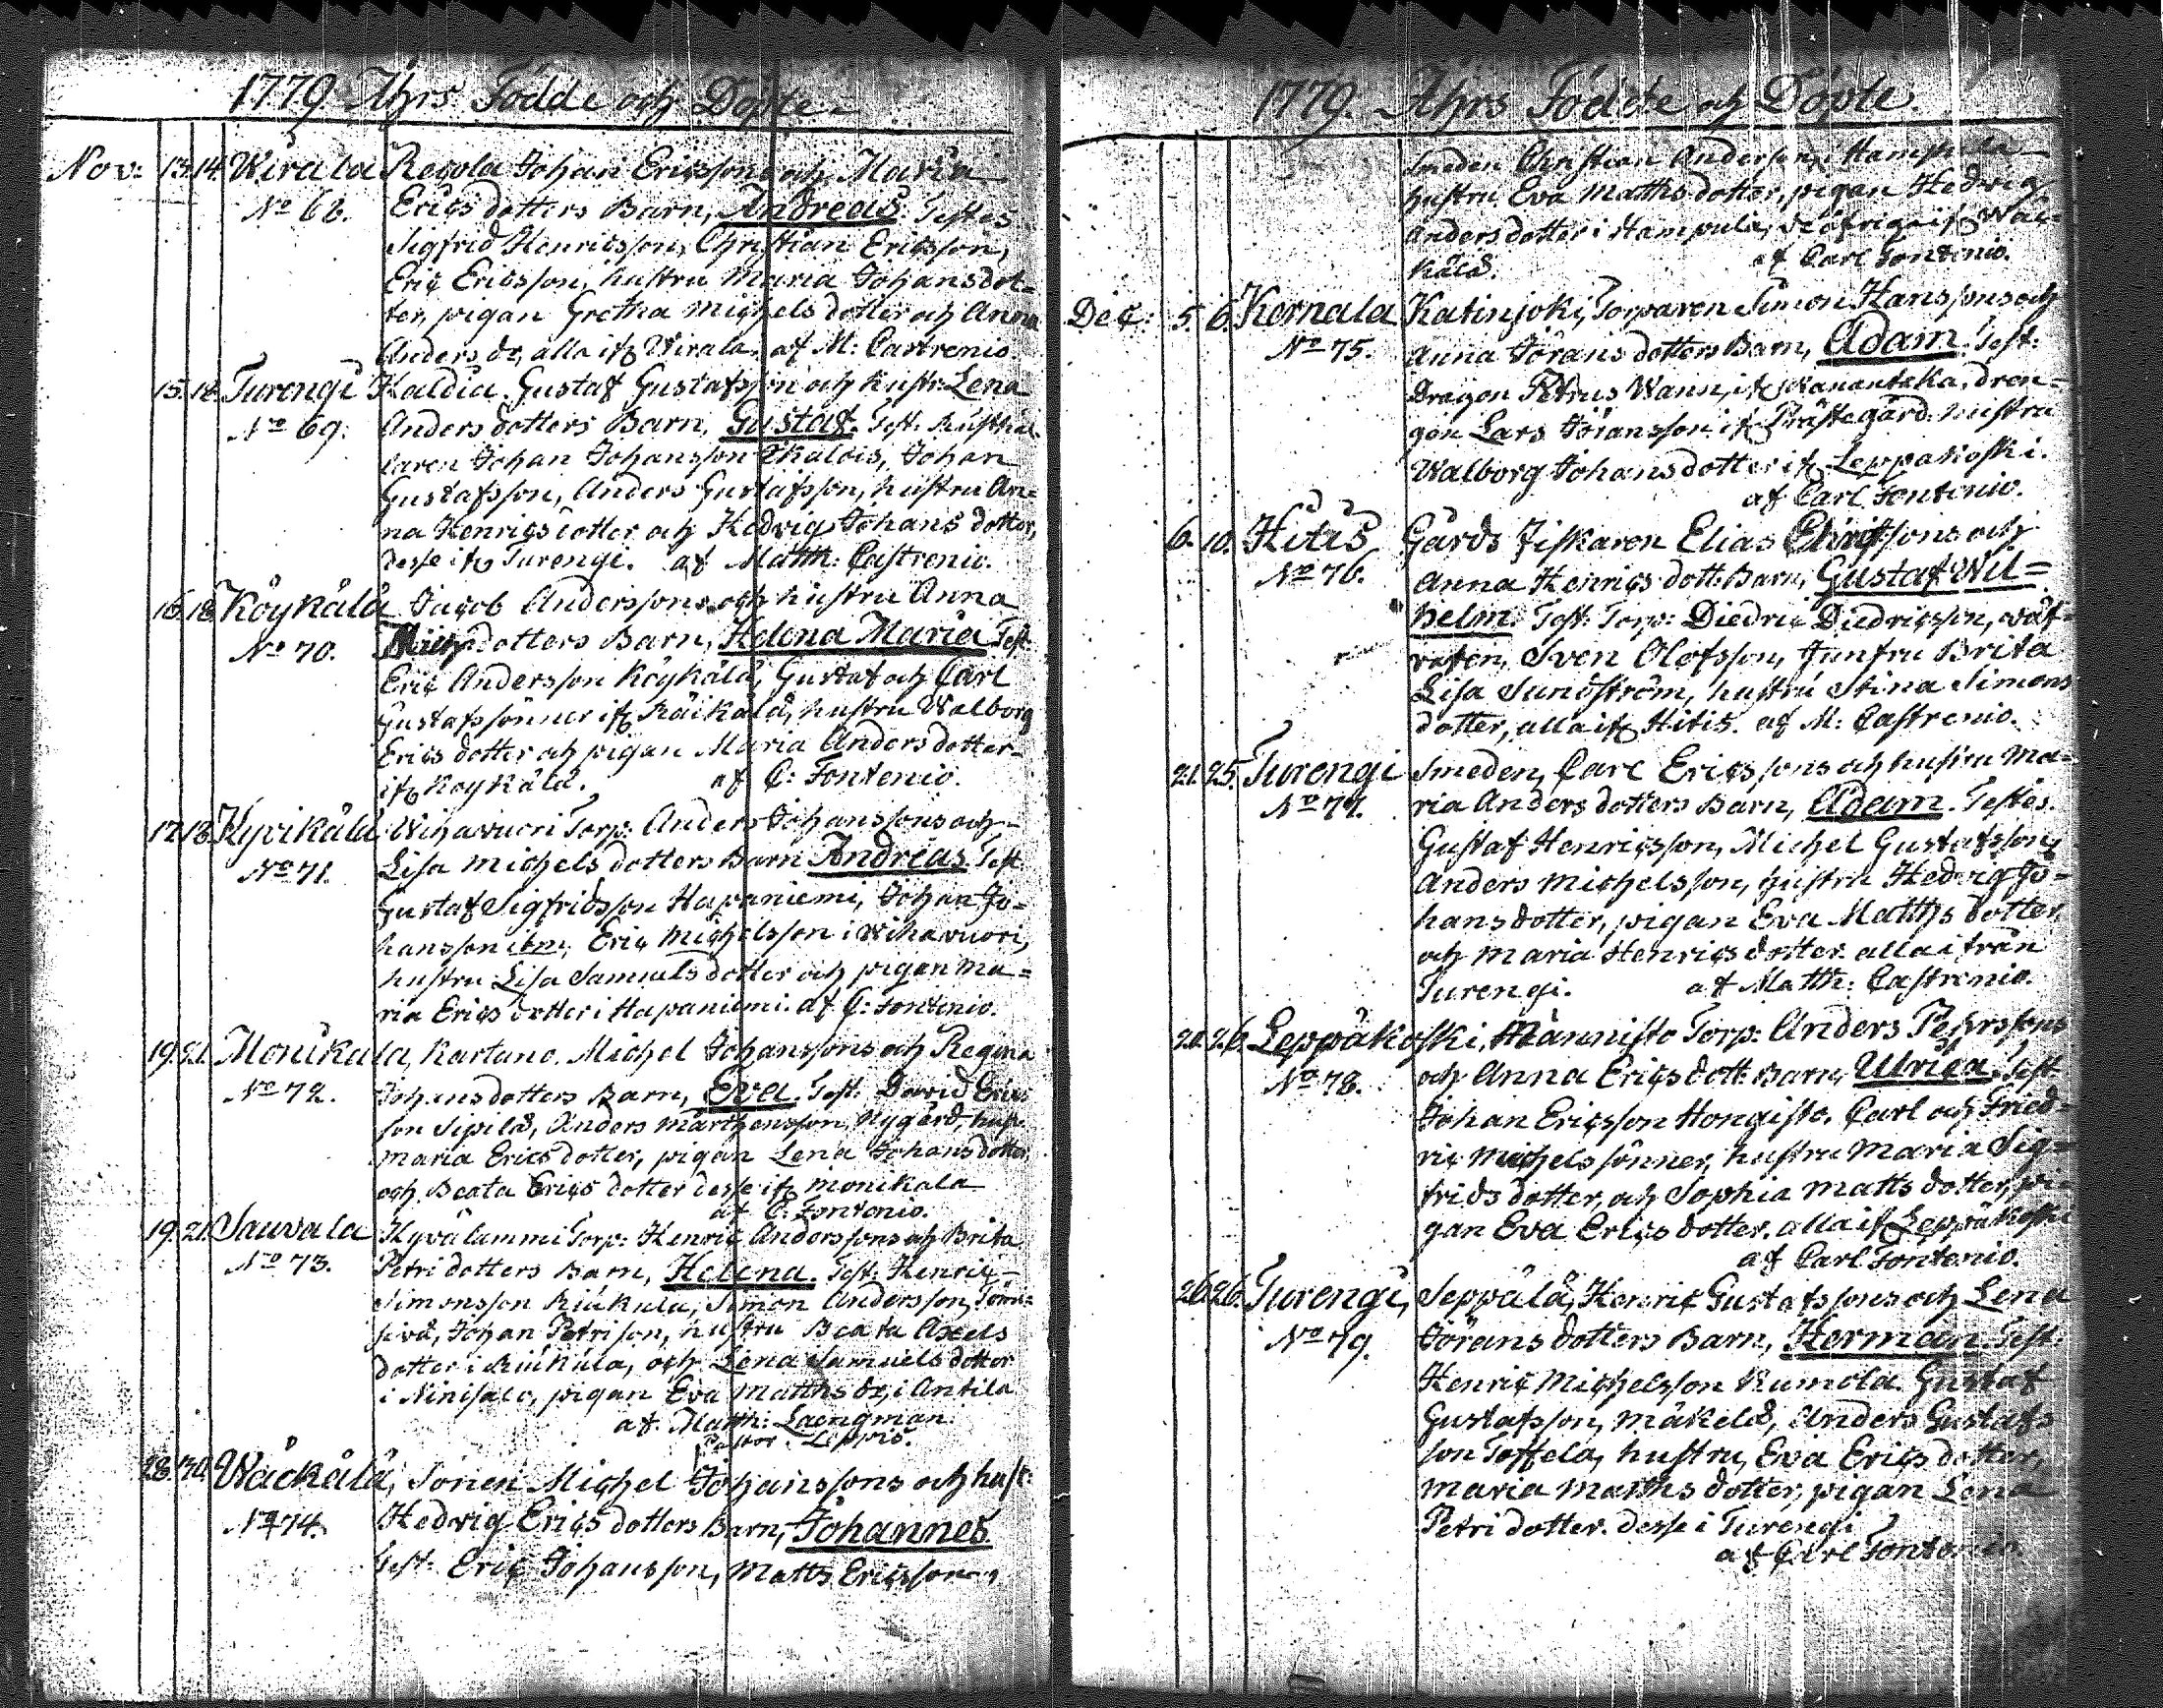 1779. Åhrs Födde och Döpte
Nov: 13. 14. Wirala Regola Johan Ericssons och Maria
No 68. Erics dotters Barn, Andreas. Testes
Sigfrid Henricsson, Christian Ericsson,
Eric Ericsson, hustru Maria Johansdot=
ter, pigan Gretha Michels dotter och Anna
Anders dr, alla ifr. Wirala. af M: Castrenio.
15. 18. Turengi Kaldia. Gustaf Gustafsson och hustr. Lena
No 69. Anders dotters Barn, Gustaf. Test. Rusthål
laren Johan Johansson Johan
Gustafsson, Anders Gustafsson, hustru An=
na Henrics dotter och Hedvig Johans dotter,
desse ifr. Turengi. af Matth: Castrenio.
16. 18. Köykälä Jacob Anderssons och hustru Anna
No 70. dotters Barn, Helena Maria Test.
Eric Andersson Köykälä, Gustaf och Carl
Gustafssönner ifr. Räikälä, hustru Walborg
Erics dotter och pigan Maria Anders dotter
ifr. Köykälä. af C: Fontenio.
17. 18. Hyvikälä Wihavuori Torp: Anders Johanssons och
No 71. Lisa Michels dotters Barn Andreas. Test.
Gustaf Sigfridsson Hapaniemi, Johan Jo=
hansson item, Eric Michelsson i Wihavuori,
hustru Lisa Samuels dotter och pigan Ma=
ria Erics dotter i Hapaniemi. af C: Fontenio.
19. 21. Monikala, Kartano. Michel Johanssons och Regina
No 72. Johansdotters Barn, Eva. Test. David Erics
son Sipilä, Anders Mårthensson Nygård, hust.
Maria Erics dotter, pigan Lena Johans dotter
och Beata Erics dotter desse ifr. Monikala
af C: Fontenio.
19. 21. Sauvala Hyvälammi Torp: Henric Anderssons och Brita
No 73. Petri dotters Barn, Helena. Test. Henric
Simonsson Riukula, Simon Andersson
Johan Petrison, hustru Beata Axels
dotter i Riukula, och Lena Samuels dotter
i Ninisalo, pigan Eva Matths dr, i Antila
af. Matth: Laengman.
Pastor. Leppio.
28. 30. Wäckälä, Sonen Michel Johanssons och hust:
No 74. Hedvig Erics dotters Barn, Johannes.
Test. Eric Johansson, Matts Ericsson,
1779. Åhrs Födde och Döpte.
Smeden Christian Andersson i Hampula
hustru Eva Matths dotter, pigan Hedvig
Anders dotter i Hampula, de öfrige ifr. Wäc=
kälä. af Carl Fontenio.
Dec: 5. 6. Kernala Katinjoki, Torparen Simon Hanssons och
No 75. Anna Görans dotters Barn, Adam. Test:
Dragon Petrus Wann, ifr. Wanantaka, drän=
gen Lars Göransson ifr. Prästegård. hustru
Walborg Johansdotter ifr. Leppäkoski.
af Carl Fontenio.
6. 10. Hitis Gårds fiskaren Elias Elingssons och
No 76. Anna Henrics dott. Barn, Gustaf Wil=
helm. Test: Torp: Diedric Diedricsson, väf=
varen, Sven Olofsson, Junfru Brita
Lisa Sundström, hustru Stina Simons
dotter, alla ifr. Hitis. af M: Castrenio.
21. 25. Turengi Smeden, Carl Ericssons och hustru Ma=
No 77. ria Anders dotters Barn, Adam. Testes.
Gustaf Henricsson, Michel Gustafsson,
Anders Michelsson, hustru Hedvig Jo=
hans dotter, pigan Eva Matths dotter,
och Maria Henrics dotter. alla ifrån
Turengi. af Matth: Castrenio.
20. 26. Leppäkoski, Männistö Torp: Anders Pehrssons
No 78. och Anna Erics dott. Barn, Ulrica. Test
Johan Ericsson Hongisto. Carl och Fried=
ric Michels sönner, hustru Maria Sig=
frids dotter, och Sophia Matts dotter, pi=
gan Eva Erics dotter. alla ifr. Leppäkoski
af Carl Fontenio.
26. 26. Turengi, Seppälä, Henric Gustafssons och Lena
No 79. Görans dotters Barn, Herman. Test:
Henric Michelsson Rumola. Gustaf
Gustafsson, Mäkelä, Anders Gustafs
son Toffela, hustru, Eva Erics dotter,
Maria Matths dotter, pigan Lena
Petri dotter. desse i Turengi
af Carl Fontenio.